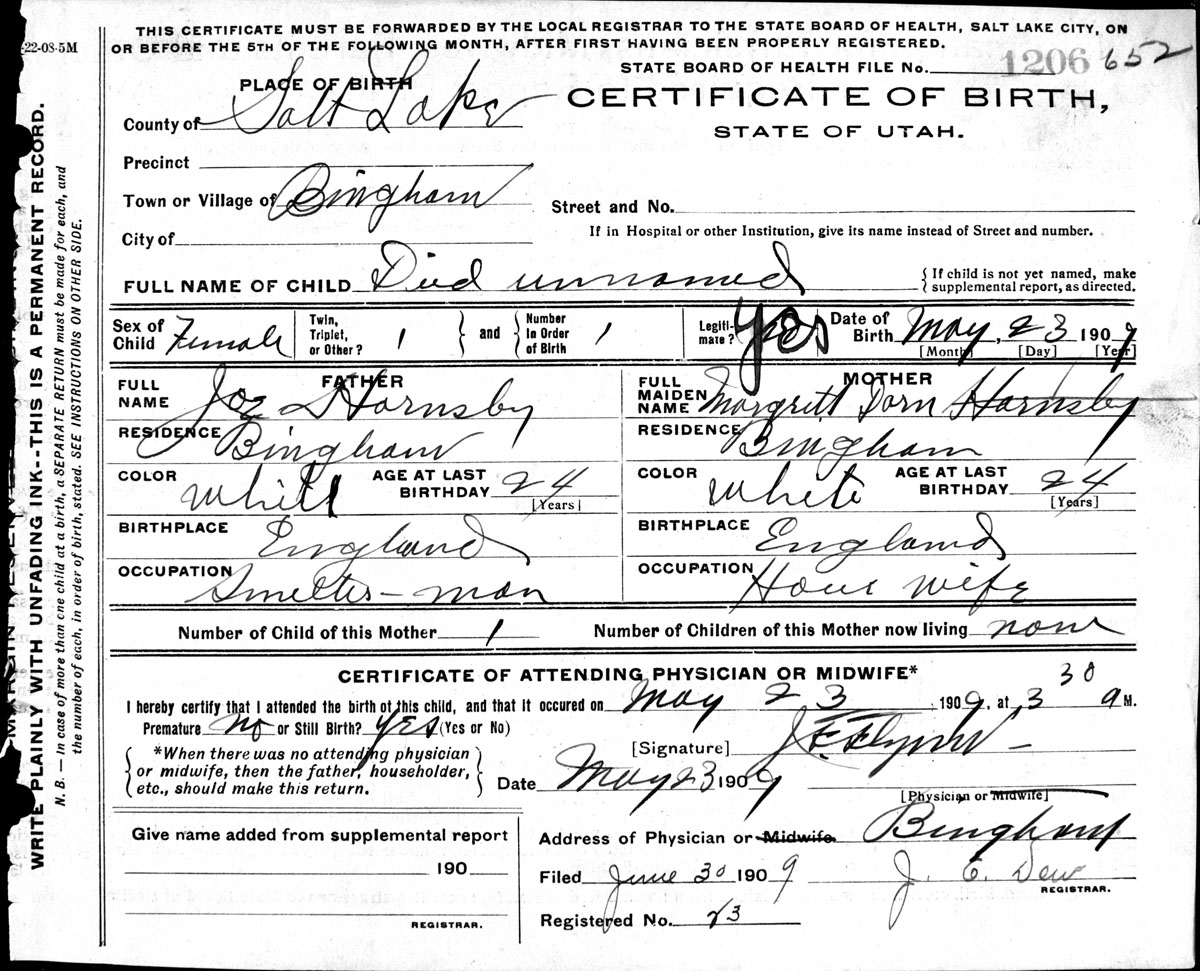 THIS CERTIFICATE MUST BE FORWARDED BY THE LOCAL REGISTRAR TO THE STATE BOARD OF HEALTH, SALT LAKE CITY, ON
OR BEFORE THE 5TH OF THE FOLLOWING MONTH, AFTER FIRST HAVING BEEN PROPERLY REGISTERED.
-22-08-5M
STATE BOARD OF HEALTH FILE No. 1206 652
PLACE OF BIRTH
CERTIFICATE OF BIRTH,
STATE OF UTAH.
County of Salt Lake
Precinct
Town or Village of Bingham
Street and No.
If in Hospital or other Institution, give its name instead of Street and number.
City of
FULL NAME OF CHILD Died unnamed
{If child is not yet named, make
supplemental report, as directed.
Sex of Child Female
Twin, Triplet, or Other? 1 } and { Number In Order of Birth 1
Legitimate? Yes
Date of Birth May, 23 1909
[Month] [Day] [Year]
FATHER
FULL NAME Joe Hornsby
RESIDENCE Bingham
COLOR White AGE AT LAST BIRTHDAY 24
[Years]
BIRTHPLACE England
OCCUPATION Smelter-man
MOTHER
FULL MAIDEN NAME Margrett Dorn Hornsby
RESIDENCE Bingham
COLOR White AGE AT LAST BIRTHDAY 24
[Years]
BIRTHPLACE England
OCCUPATION House wife
Number of Child of this Mother 1 Number of Children of this Mother now living none
CERTIFICATE OF ATTENDING PHYSICIAN OR MIDWIFE*
I hereby certify that I attended the birth of this child, and that it occured on May 23, 1909, at 3 30 a M.
Premature No or Still Birth? Yes (Yes or No)
{*When there was no attending physician
or midwife, then the father, householder,
etc., should make this return.}
[Signature] J E Flynn
Date May 23 1909
[Physician or Midwife]
Give name added from supplemental report
190
REGISTRAR.
Address of Physician or Midwife Bingham
Filed June 30 1909 J. E. Dew
REGISTRAR.
Registered No. 23
WRITE PLAINLY WITH UNFADING INK--THIS IS A PERMANENT RECORD.
N. B. — In case of more than one child at a birth, a SEPARATE RETURN must be made for each, and
the number of each, in order of birth, stated. SEE INSTRUCTIONS ON OTHER SIDE.